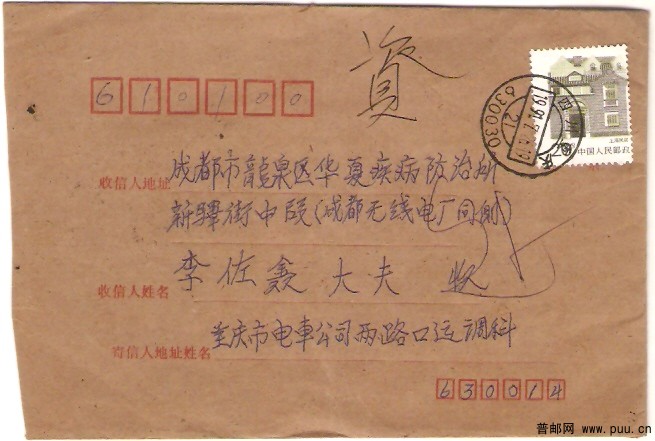 資
610100
上海民居
中国人民邮政
630030
收信人地址 成都市龍泉区华夏疾病防治所
新驛街中段(成都无线电厂同側)
收信人姓名 李佐鑫大夫 收
寄信人地址姓名 重庆市电車公司两路口运调科
630014
普邮网 www.puu.cn